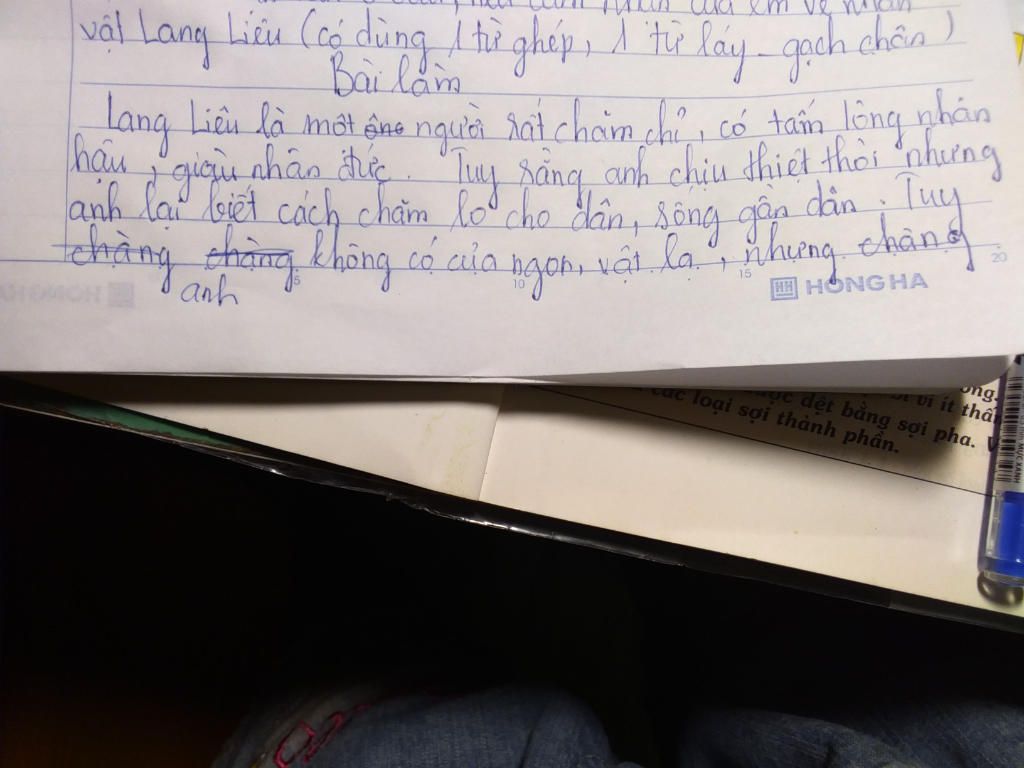 cảm nhận của em về nhân
vật Lang Liêu (có dùng 1 từ ghép, 1 từ láy - gạch chân)
Bài làm
Lang Liêu là một ông người rất chăm chỉ, có tấm lòng nhân
hậu, giàu nhân đức. Tuy rằng anh chịu thiệt thòi nhưng
anh lại biết cách chăm lo cho dân, sống gần dân. Tuy
chàng chàng không có của ngon, vật lạ, nhưng chàng
anh
5 10 15 20
HH HONG HA
ông.
vì ít thấ
được dệt bằng sợi pha. V
các loại sợi thành phần.